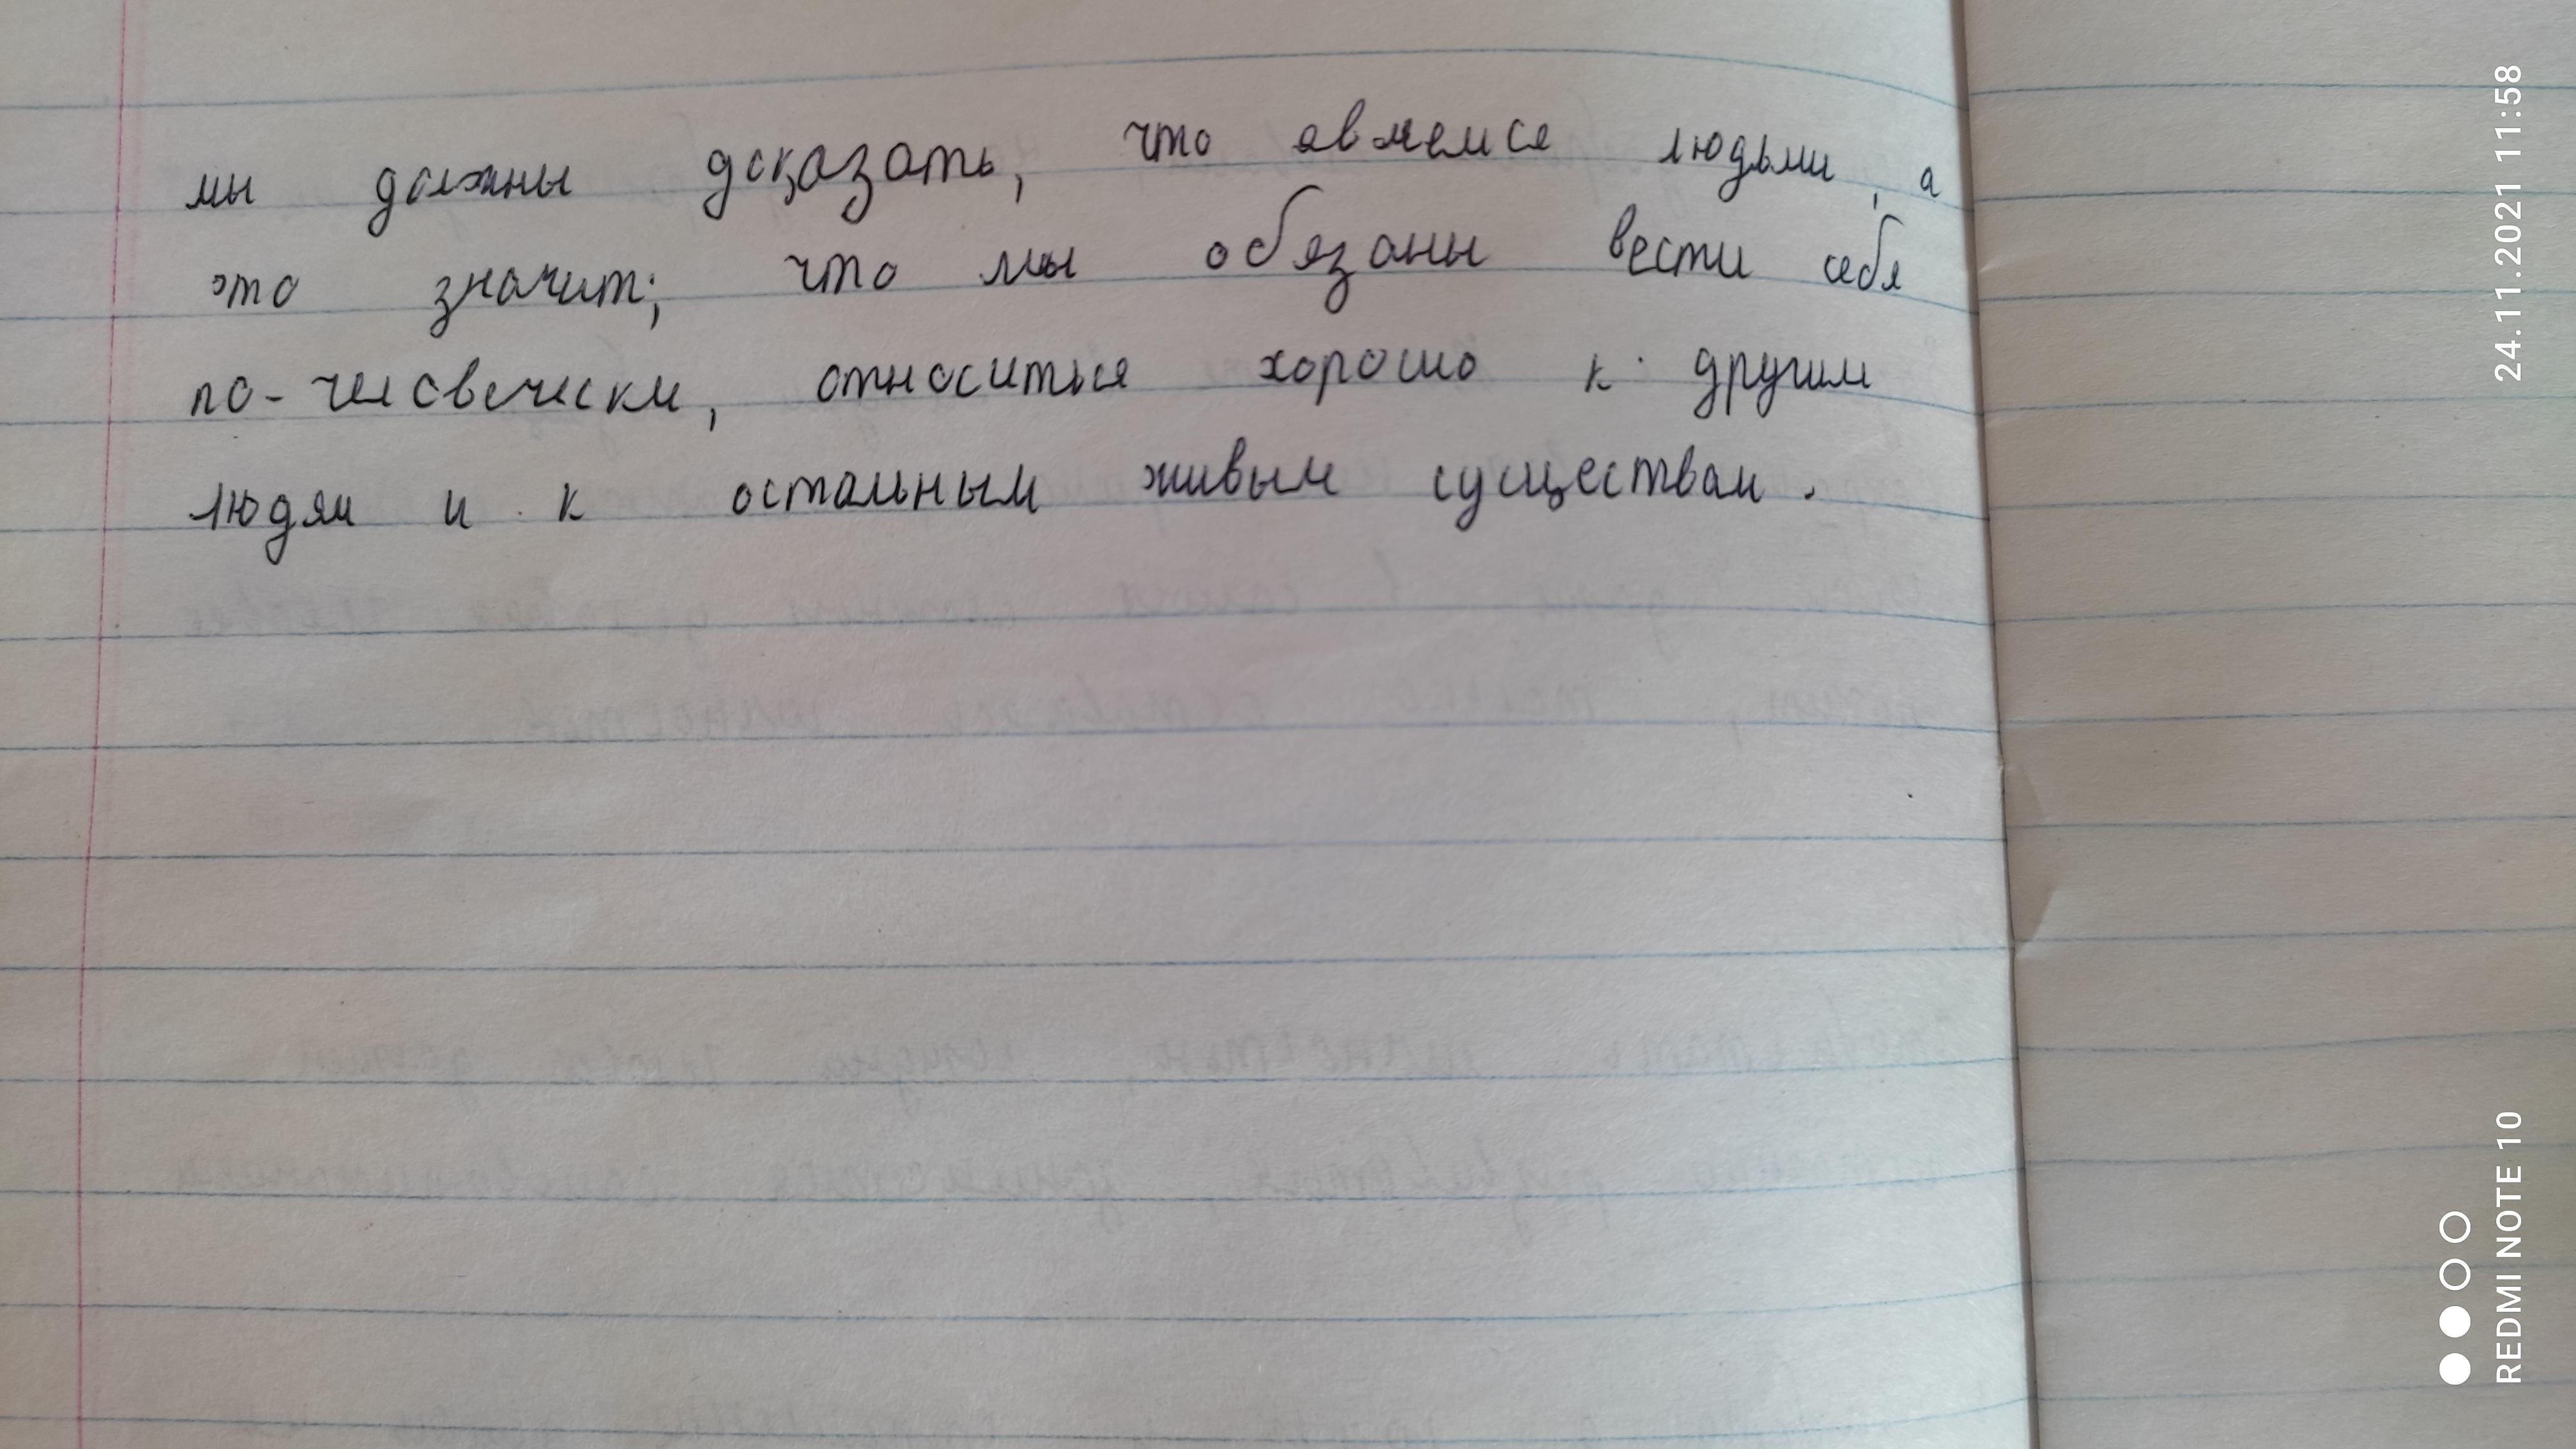 мы должны доказать, что являемся людьми, а
это значит, что мы обязаны вести себя
по-человечески, относиться хорошо к другим
людям и к остальным живым существам.
24.11.2021 11:58
REDMI NOTE 10